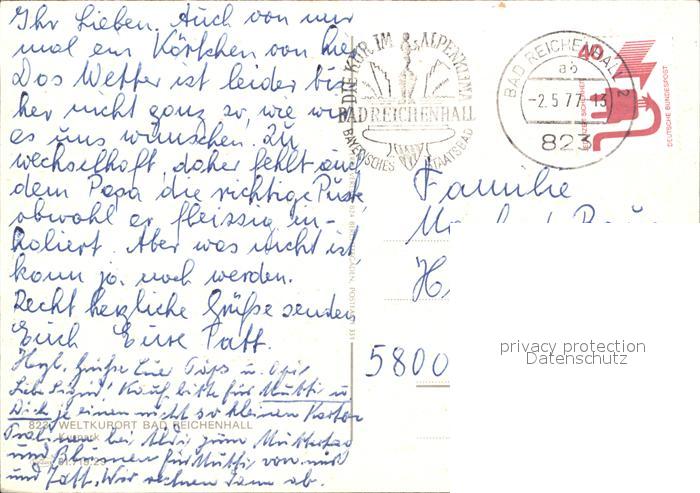 Ihr Lieben. Auch von nur
mal ein Kärtchen von hier
Das Wetter ist leider bis
her nicht ganz so, wie wir
es uns wünschen. Zu
wechselhaft, daher fehlt auch
dem Papa die richtige Puste
obwohl er fleissig in-
haliert. Aber was nicht ist
kann ja noch werden.
Recht herzliche Grüße senden
Euch Eure
Hzgl. Grüße Euer Paps u. Opi,
Kauf bitte für Mutti u
Dich je einen nicht so kleinen Karton
Pralinen bei Aldi zum Muttertag
und Blumen für Mutti von mir
und Wir rechnen dann ab.
8230 WELTKURORT BAD REICHENHALL
Kurpark
DIE KUR IM ALPENKLIMA
BAD REICHENHALL
BAYERISCHES STAATSBAD
BAD REICHENHALL 2
ab
-2.5.77-13
823
40
DEUTSCHE BUNDESPOST
Familie
H
5800
privacy protection
Datenschutz